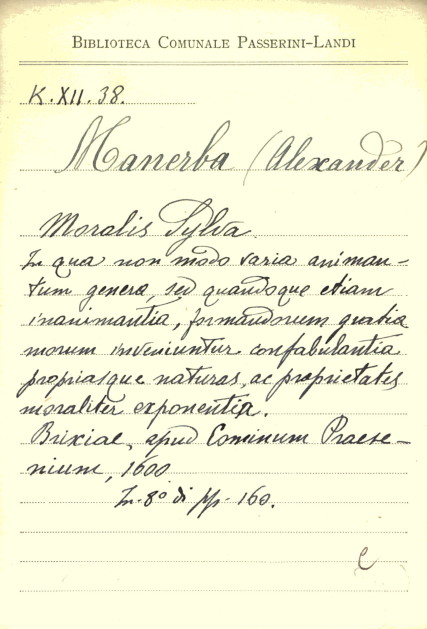 BIBLIOTECA COMUNALE PASSERINI-LANDI
K.XII.38.
Manerba (Alexander)
Moralis Sylva
In qua non modo varia animan-
tum genera, sed quandoque etiam
inanimantia, formandorum gratia
morum inveniuntur confabulantia
propriasque naturas, ac proprietates
moraliter exponentia.
Brixiae, apud Cominum Praese-
nium, 1600
In-8º di pp. 160.
C